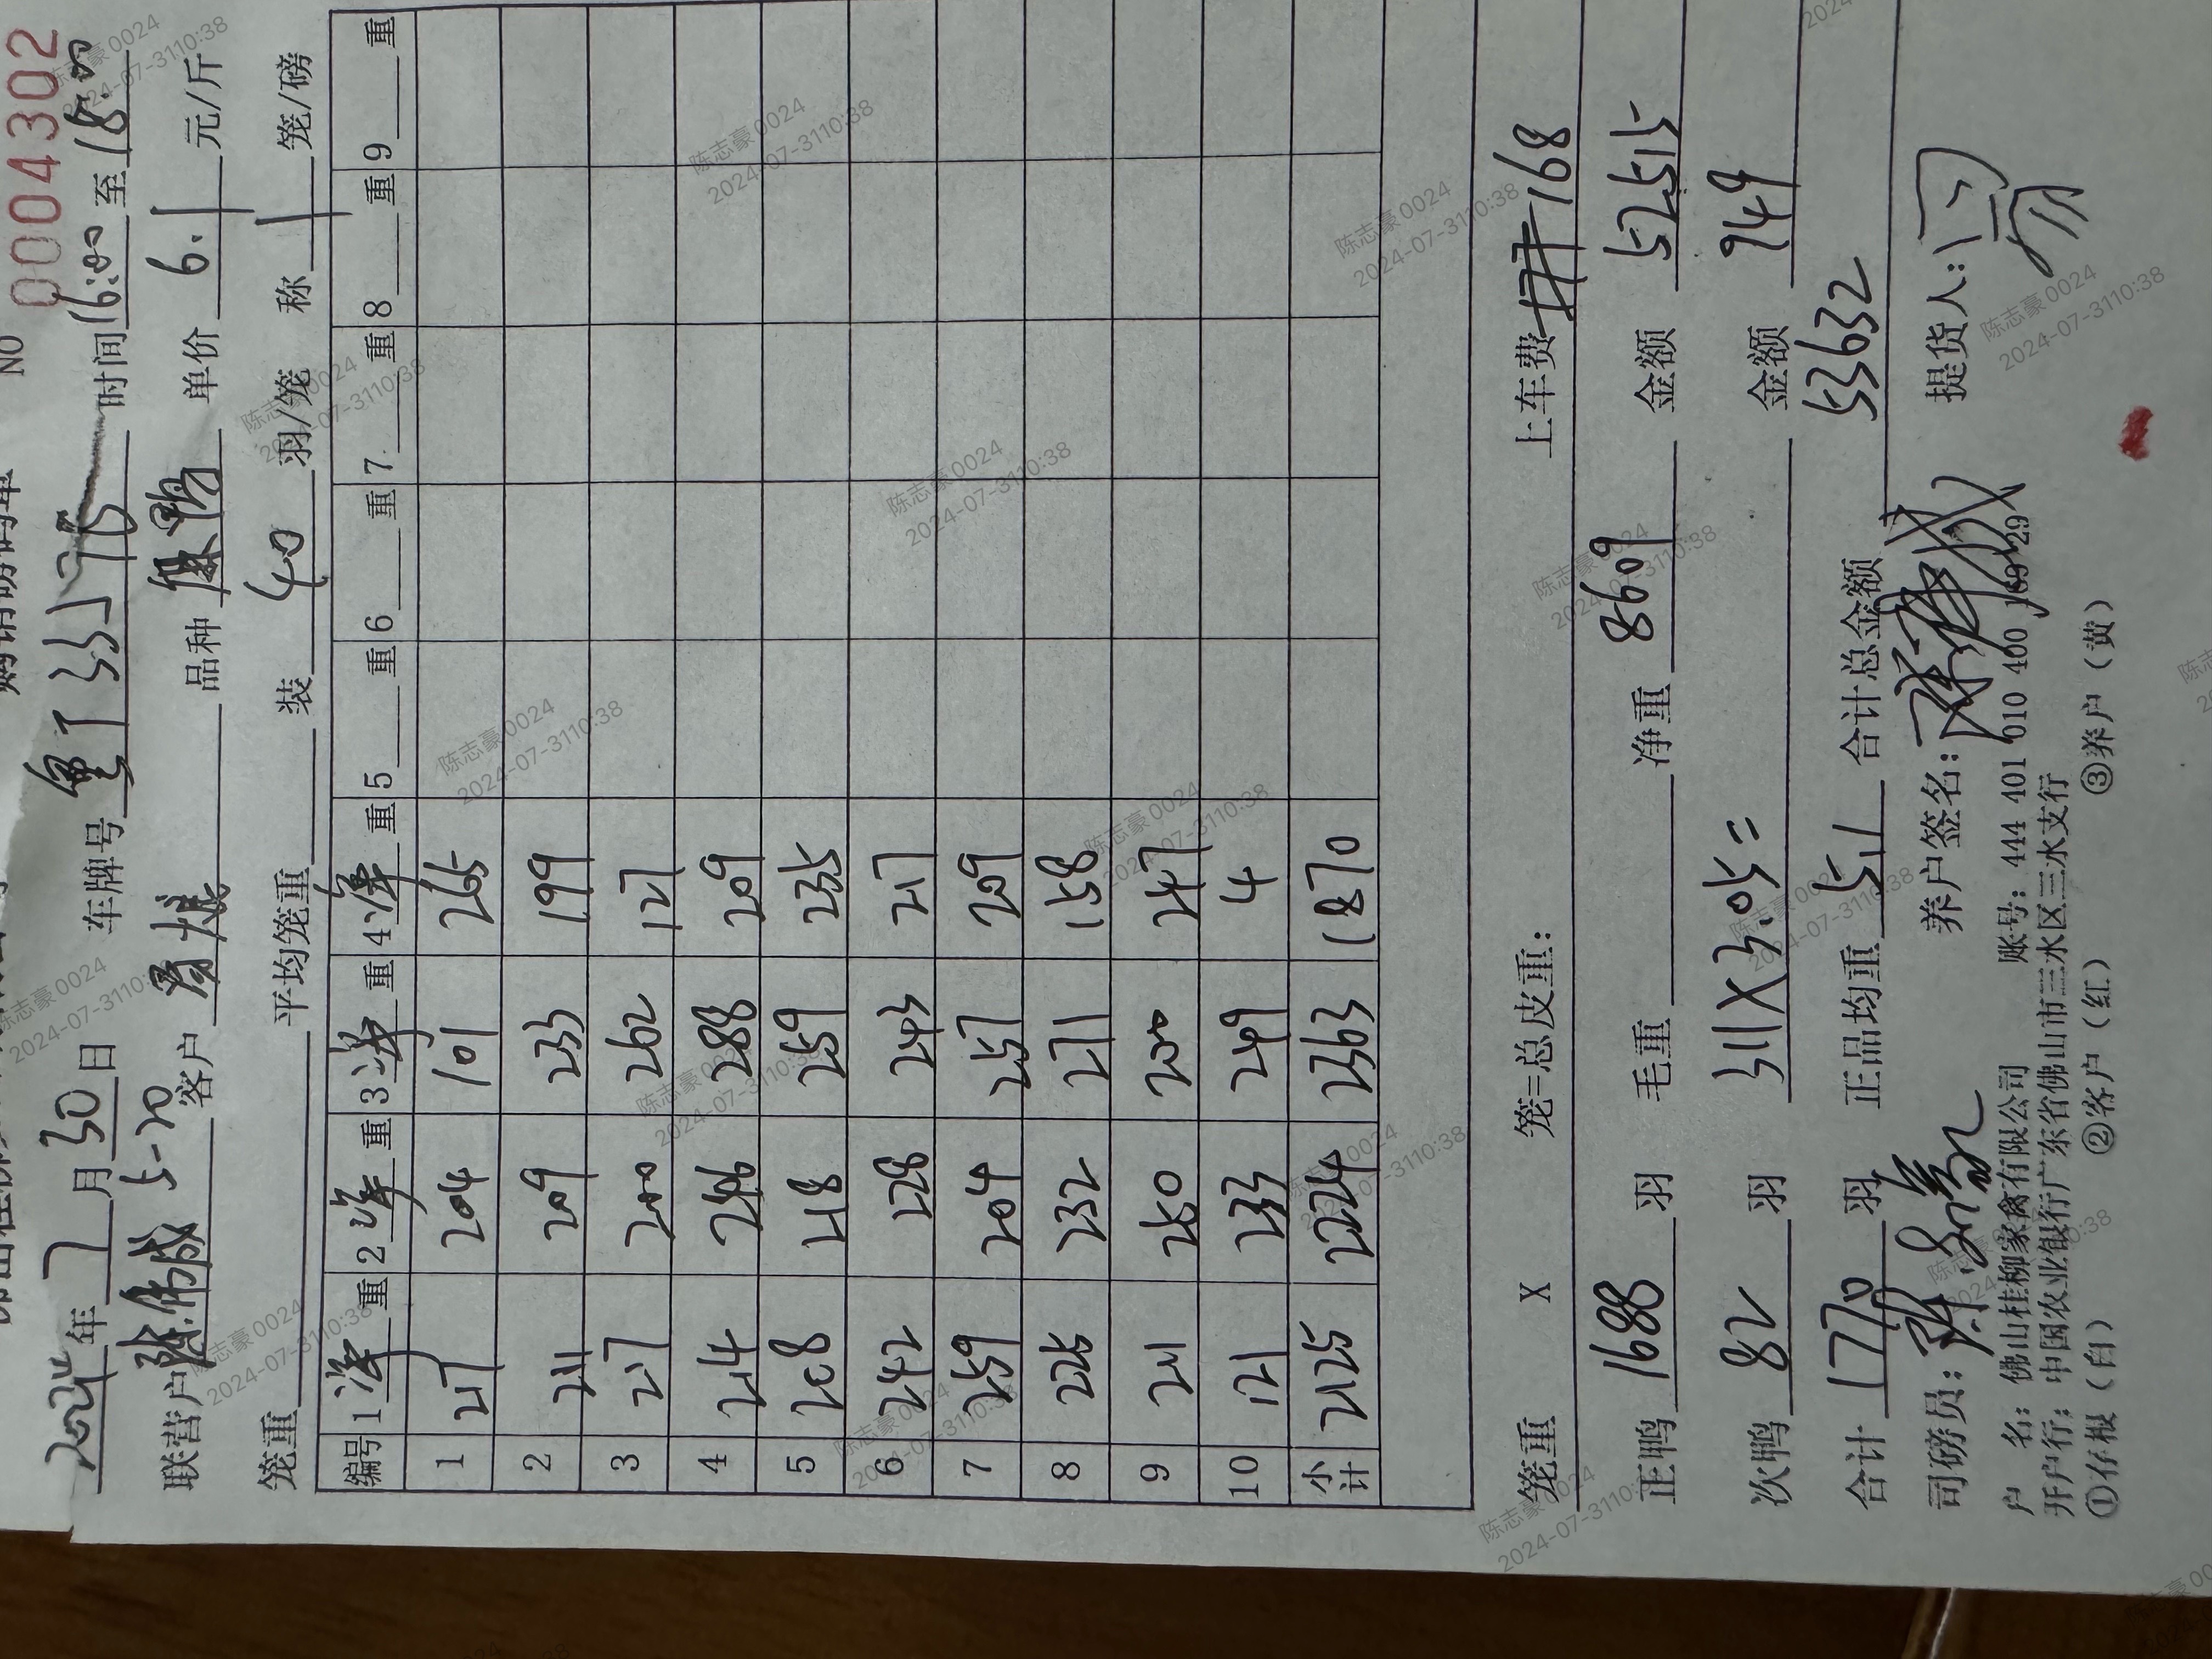 购销磅码单 NO 0004302
2024年7月30日 车牌号 粤T33J75 时间16:00至18:00
联营户 陈伟成 5-20 客户 品种 麻鸭 单价 6.1 元/斤
笼重 平均笼重 装 40 羽/笼 称 1 笼/磅
编号 1 净重 2 净重 3 净重 4 净重 5 重 6 重 7 重 8 重 9 重
1 217 204 101 265
2 211 209 233 199
3 217 200 262 127
4 214 246 288 209
5 208 218 259 235
6 242 228 243 217
7 259 204 257 209
8 225 232 271 158
9 211 250 200 247
10 121 233 249 4
小计 2125 2224 2363 1870
笼重 X 笼=总皮重: 上车费 168
正鸭 1688 羽 毛重 净重 8609 金额 52515
次鸭 82 羽 311X3.05= 金额 949
合计 1770 羽 正品均重 5.1 合计总金额 53632
司磅员: 养户签名: 提货人:
户 名: 佛山桂柳家禽有限公司 账号: 444 401 010 400 169 29
开户行: 中国农业银行广东省佛山市三水区三水支行
①存根(白) ②客户(红) ③养户(黄)
陈志豪0024
2024-07-3110:38